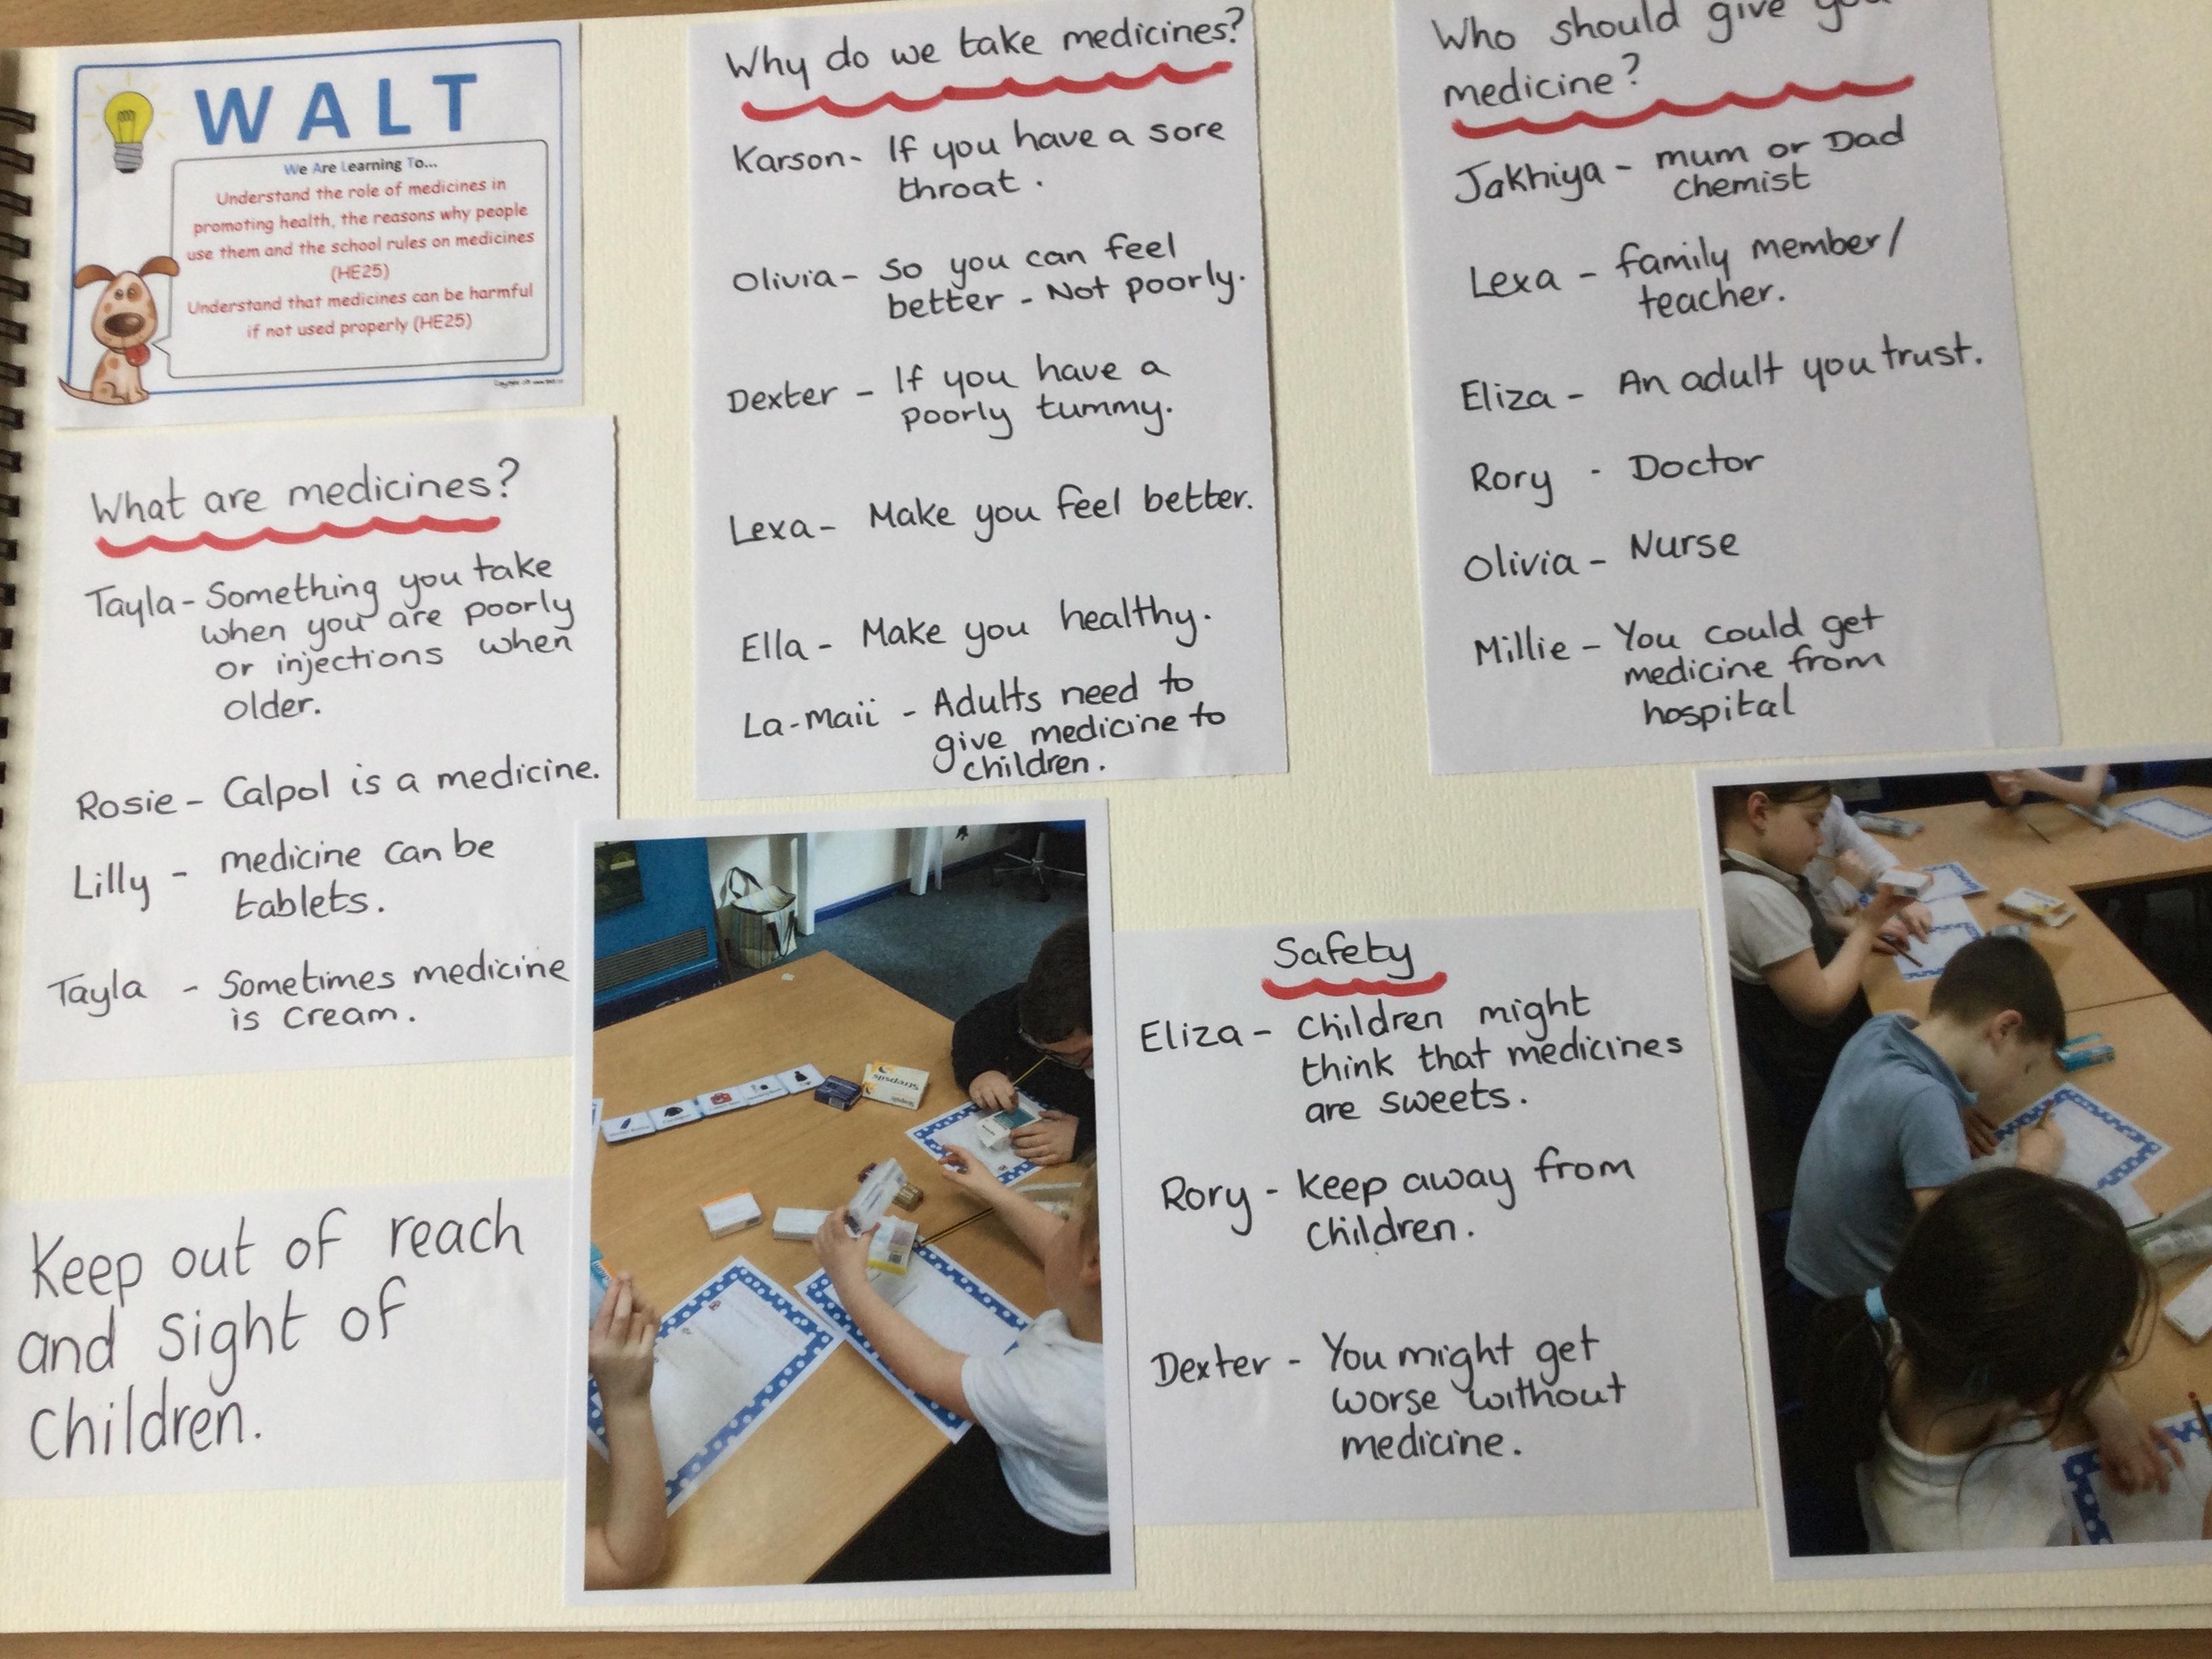 WALT
We Are Learning To...
Understand the role of medicines in
promoting health, the reasons why people
use them and the school rules on medicines
(HE25)
Understand that medicines can be harmful
if not used properly (HE25)
What are medicines?
Tayla - Something you take
when you are poorly
or injections when
older.
Rosie - Calpol is a medicine.
Lilly - medicine can be
tablets.
Tayla - Sometimes medicine
is cream.
Keep out of reach
and sight of
children.
Why do we take medicines?
Karson - If you have a sore
throat.
Olivia - So you can feel
better - Not poorly.
Dexter - If you have a
poorly tummy.
Lexa - Make you feel better.
Ella - Make you healthy.
La-maii - Adults need to
give medicine to
children.
Who should give you
medicine?
Jakhiya - mum or Dad
chemist
Lexa - family member/
teacher.
Eliza - An adult you trust.
Rory - Doctor
Olivia - Nurse
Millie - You could get
medicine from
hospital
Strepsils
Safety
Eliza - Children might
think that medicines
are sweets.
Rory - keep away from
children.
Dexter - You might get
worse without
medicine.